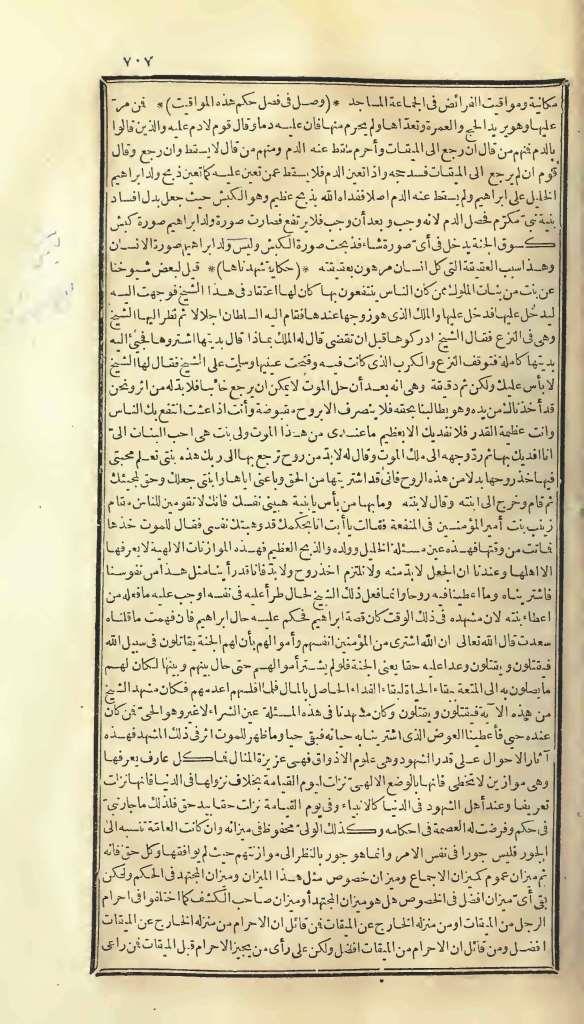 ٧٠٧
مكانية ومواقيت الفرائض فى الجماعة المساجد * (وصل فى فصل حكم هذه المواقيت) * فمن مرّ
عليها وهو يريد الحج والعمرة وتعدّاها ولم يحرم منها فان عليه دما وقال قوم لا دم عليه والذين قالوا
بالدم فمنهم من قال ان رجع الى الميقات وأحرم سقط عنه الدم ومنهم من قال لا يسقط وان رجع وقال
قوم ان لم يرجع الى الميقات فسد حجه واذا تعين الدم فلا يسقط عمن تعين عليه كما تعين ذبح ولد ابراهيم
الخليل على ابراهيم ولم يسقط عنه الدم اصلا ففداه الله بذبح عظيم وهو الكبش حيث جعل بدل افساد
بنية نبىّ مكرّم فحصل الدم لانه وجب وبعد أن وجب فلا يرتفع فصارت صورة ولد ابراهيم صورة كبش
كسوق الجنة يدخل فى أىّ صورة شاء فذبحت صورة الكبش ولبس ولد ابراهيم صورة الانسان
وهذا سبب العقيقة التى كل انسان مرهون بعقيقته * (حكاية شهدناها) * قيل لبعض شيوخنا
عن بنت من بنات الملوك ممن كان الناس ينتفعون بها كان لها اعتقاد فى هذا الشيخ فوجهت اليه
ليدخل عليها فدخل عليها والملك الذى هو زوجها عندها فقام اليه السلطان اجلالا ثم نظر اليها الشيخ
وهى فى النزع فقال الشيخ ادركوها قبل ان تقضى قال له الملك بماذا قال بديتها اشتروها فجىء اليه
بديتها كاملة فتوقف النزع والكرب الذى كانت فيه وفتحت عينيها وسلمت على الشيخ فقال لها الشيخ
لا بأس عليك ولكن ثم دقيقة وهى انه بعد أن حل الموت لا يمكن ان يرجع خائبا فلا بدّ له من اثر ونحن
قد أخذناك من يده وهو يطالبنا بحقه فلا ينصرف الا بروح مقبوضة وأنت اذا عشت انتفع بك الناس
وانت عظيمة القدر فلا نفديك الا بعظيم ما عندى من هذا الموت ولى بنت هى احب البنات الىّ
انا افديك بها ثم ردّ وجهه الى ملك الموت وقال له لا بدّ من روح ترجع بها الى ربك هذه بنتى تعلم محبتى
فيها خذ روحها بدلا من هذه الروح فانى قد اشتريتها من الحق وباعنى اياها وابنتى جعلك وحق لمجيئك
ثم قام وخرج الى ابنته وقال لابنته وما بها من بأس يا بنية هبينى نفسك فانك لا تقومين للناس مقام
زينب بنت أمير المؤمنين فى المنفعة فقالت يا أبت انا بحكمك قد وهبتك نفسى فقال للموت خذها
فماتت من وقتها فهذه عين مسئلة الخليل وولده والذبح العظيم فهذه الموازنات الالهية لا يعرفها
الا اهلها وعندنا ان الجعل لا بدّ منه ولا نلتزم اخذ روح ولا بدّ فانا قد رأينا مثل هذا من نفوسنا
فاشتريناه وما اعطينا فيه روحا وانما فعل ذلك الشيخ لحال طرأ عليه فى نفسه اوجب عليه ما فعله من
اعطاء بنته لان مشهده فى ذلك الوقت كان قصة ابراهيم فحكم عليه حال ابراهيم فان فهمت ما قلناه
سعدت قال الله تعالى ان الله اشترى من المؤمنين انفسهم وأموالهم بأن لهم الجنة يقاتلون فى سبيل الله
فيقتلون ويقتلون وعدا عليه حقا يعنى الجنة فلو لم يشتر أموالهم حتى حال بينهم وبينها لكان لهم
ما يصلون به الى المتعة حقاء الحياة لبقاء الغداء الحاصل بالمال فلما افلسهم اعدمهم فكان مشهد الشيخ
من هذه الآية فيقتلون ويقتلون وكان مشهدنا فى هذه المسئلة عين الشراء لاغير وهو الحىّ فمن كان
عنده حيى فأعطينا العوض الذى اشترينا به حياته فبقى حيا وما ظهر للموت اثر فى ذلك المشهد فهذه
آثار الاحوال على قدر الشهود وهى علوم الاذواق فهى عزيزة المنال فما كل عارف يعرفها
وهى موازين لا تخطى فانها بالوضع الالهىّ نزلت ليوم القيامة بخلاف نزولها فى الدنيا فانها نزلت
تعريفا وعند أهل الشهود فى الدنيا كالانبياء وفى يوم القيامة نزلت حقا بيد حق فلذلك ما جار نبىّ
فى حكم وفرضت له العصمة فى احكامه وكذلك الولىّ محفوظ فى ميزانه وان كانت العامّة تنسبه الى
الجور فليس جورا فى نفس الامر وانما هو جور بالنظر الى موازينهم حيث لم يوافقها وكل حق فانه
ثم ميزان عموم كميزان الاجماع وميزان خصوص مثل هذا الميزان وميزان المجتهد فى الحكم ولكن
بقى أىّ ميزان افضل فى الخصوص هل هو ميزان المجتهد أو ميزان صاحب الكشف كما اختلفوا فى احرام
الرجل من الميقات او من منزله الخارج عن الميقات فمن قائل ان الاحرام من منزله الخارج عن الميقات
افضل ومن قائل ان الاحرام من الميقات افضل ولكن على رأى من يجيز الاحرام قبل الميقات فمن راعى